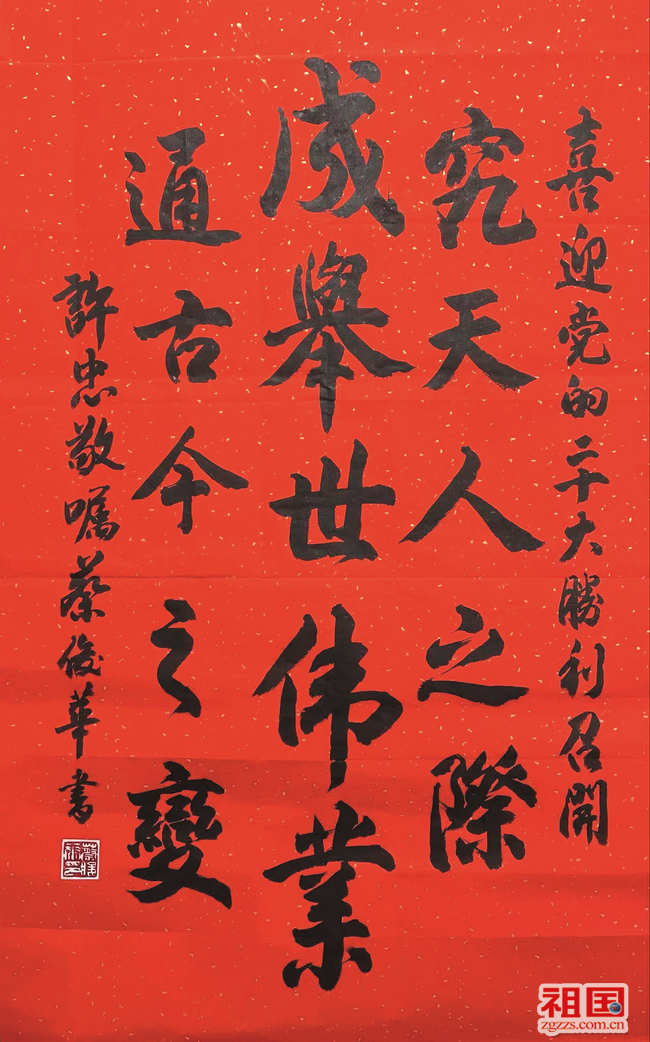 喜迎党的二十大勝利召開
究天人之際
成舉世伟業
通古今之變
許忠敬嘱蔡俊華書
祖国
zgzzs.com.cn